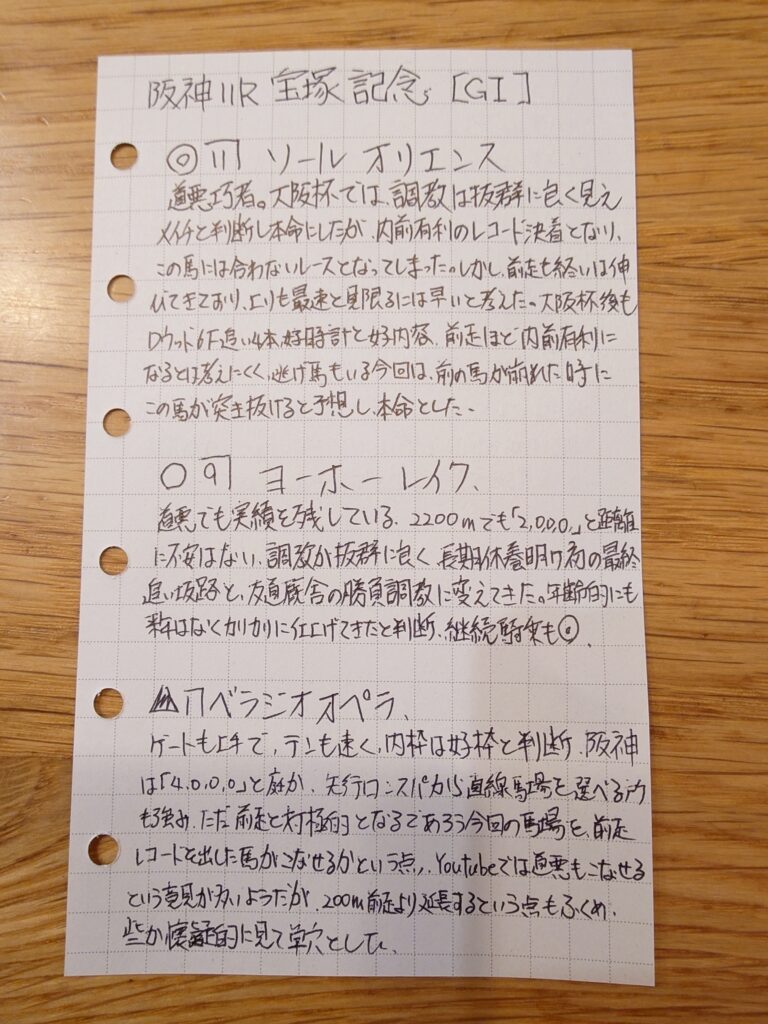 阪神11R 宝塚記念 [GI]
◎11 ソールオリエンス
道悪巧者。大阪杯では、調教は抜群に良く見え
メイチと判断し本命にしたが、内前有利のレコード決着となり、
この馬には合わないレースとなってしまった。しかし、前走も終いは伸
びてきており、上りも最速と見限るには早いと考えた。大阪杯後も
Dウッド6F追い4本、好時計と好内容、前走ほど内前有利に
なるとは考えにくく、逃げ馬もいる今回は、前の馬が崩れた時に
この馬が突き抜けると予想し、本命とした。
○9 ヨーホーレイク、
道悪でも実績を残している、2200mでも「2,0,0,0,」と距離
に不安はない、調教が抜群に良く、長期休養明け初の最終
追い坂路と、友道厩舎の勝負調教に変えてきた。年齢的にも
来年はなくカリカリに仕上げてきたと判断、継続騎乗も◎.
▲1 ベラジオオペラ、
ゲートも上手で、テンも速く、内枠は好枠と判断、阪神
は「4,0,0,0」と庭か、先行ロンスパから直線馬場を選べる
も強み、ただ前走と対極的となるであろう今回の馬場を、前走
レコードを出した馬がこなせるかという点、Youtubeでは道悪もこなせる
という意見が多いようだが、200m前走より延長するという点もふくめ、
些か懐疑的に見て単穴とした、